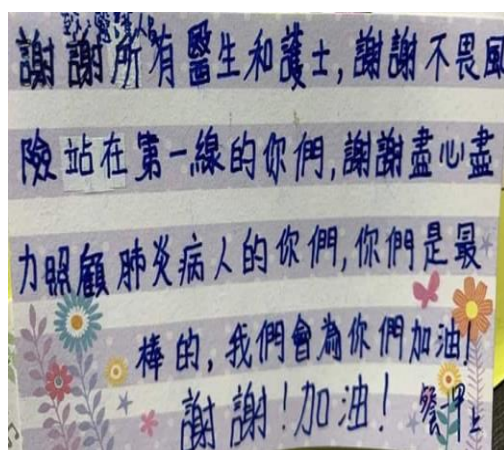 謝謝所有醫生和護士,謝謝不畏風
險站在第一線的你們,謝謝盡心盡
力照顧肺炎病人的你們,你們是最
棒的,我們會為你們加油!
謝謝!加油!